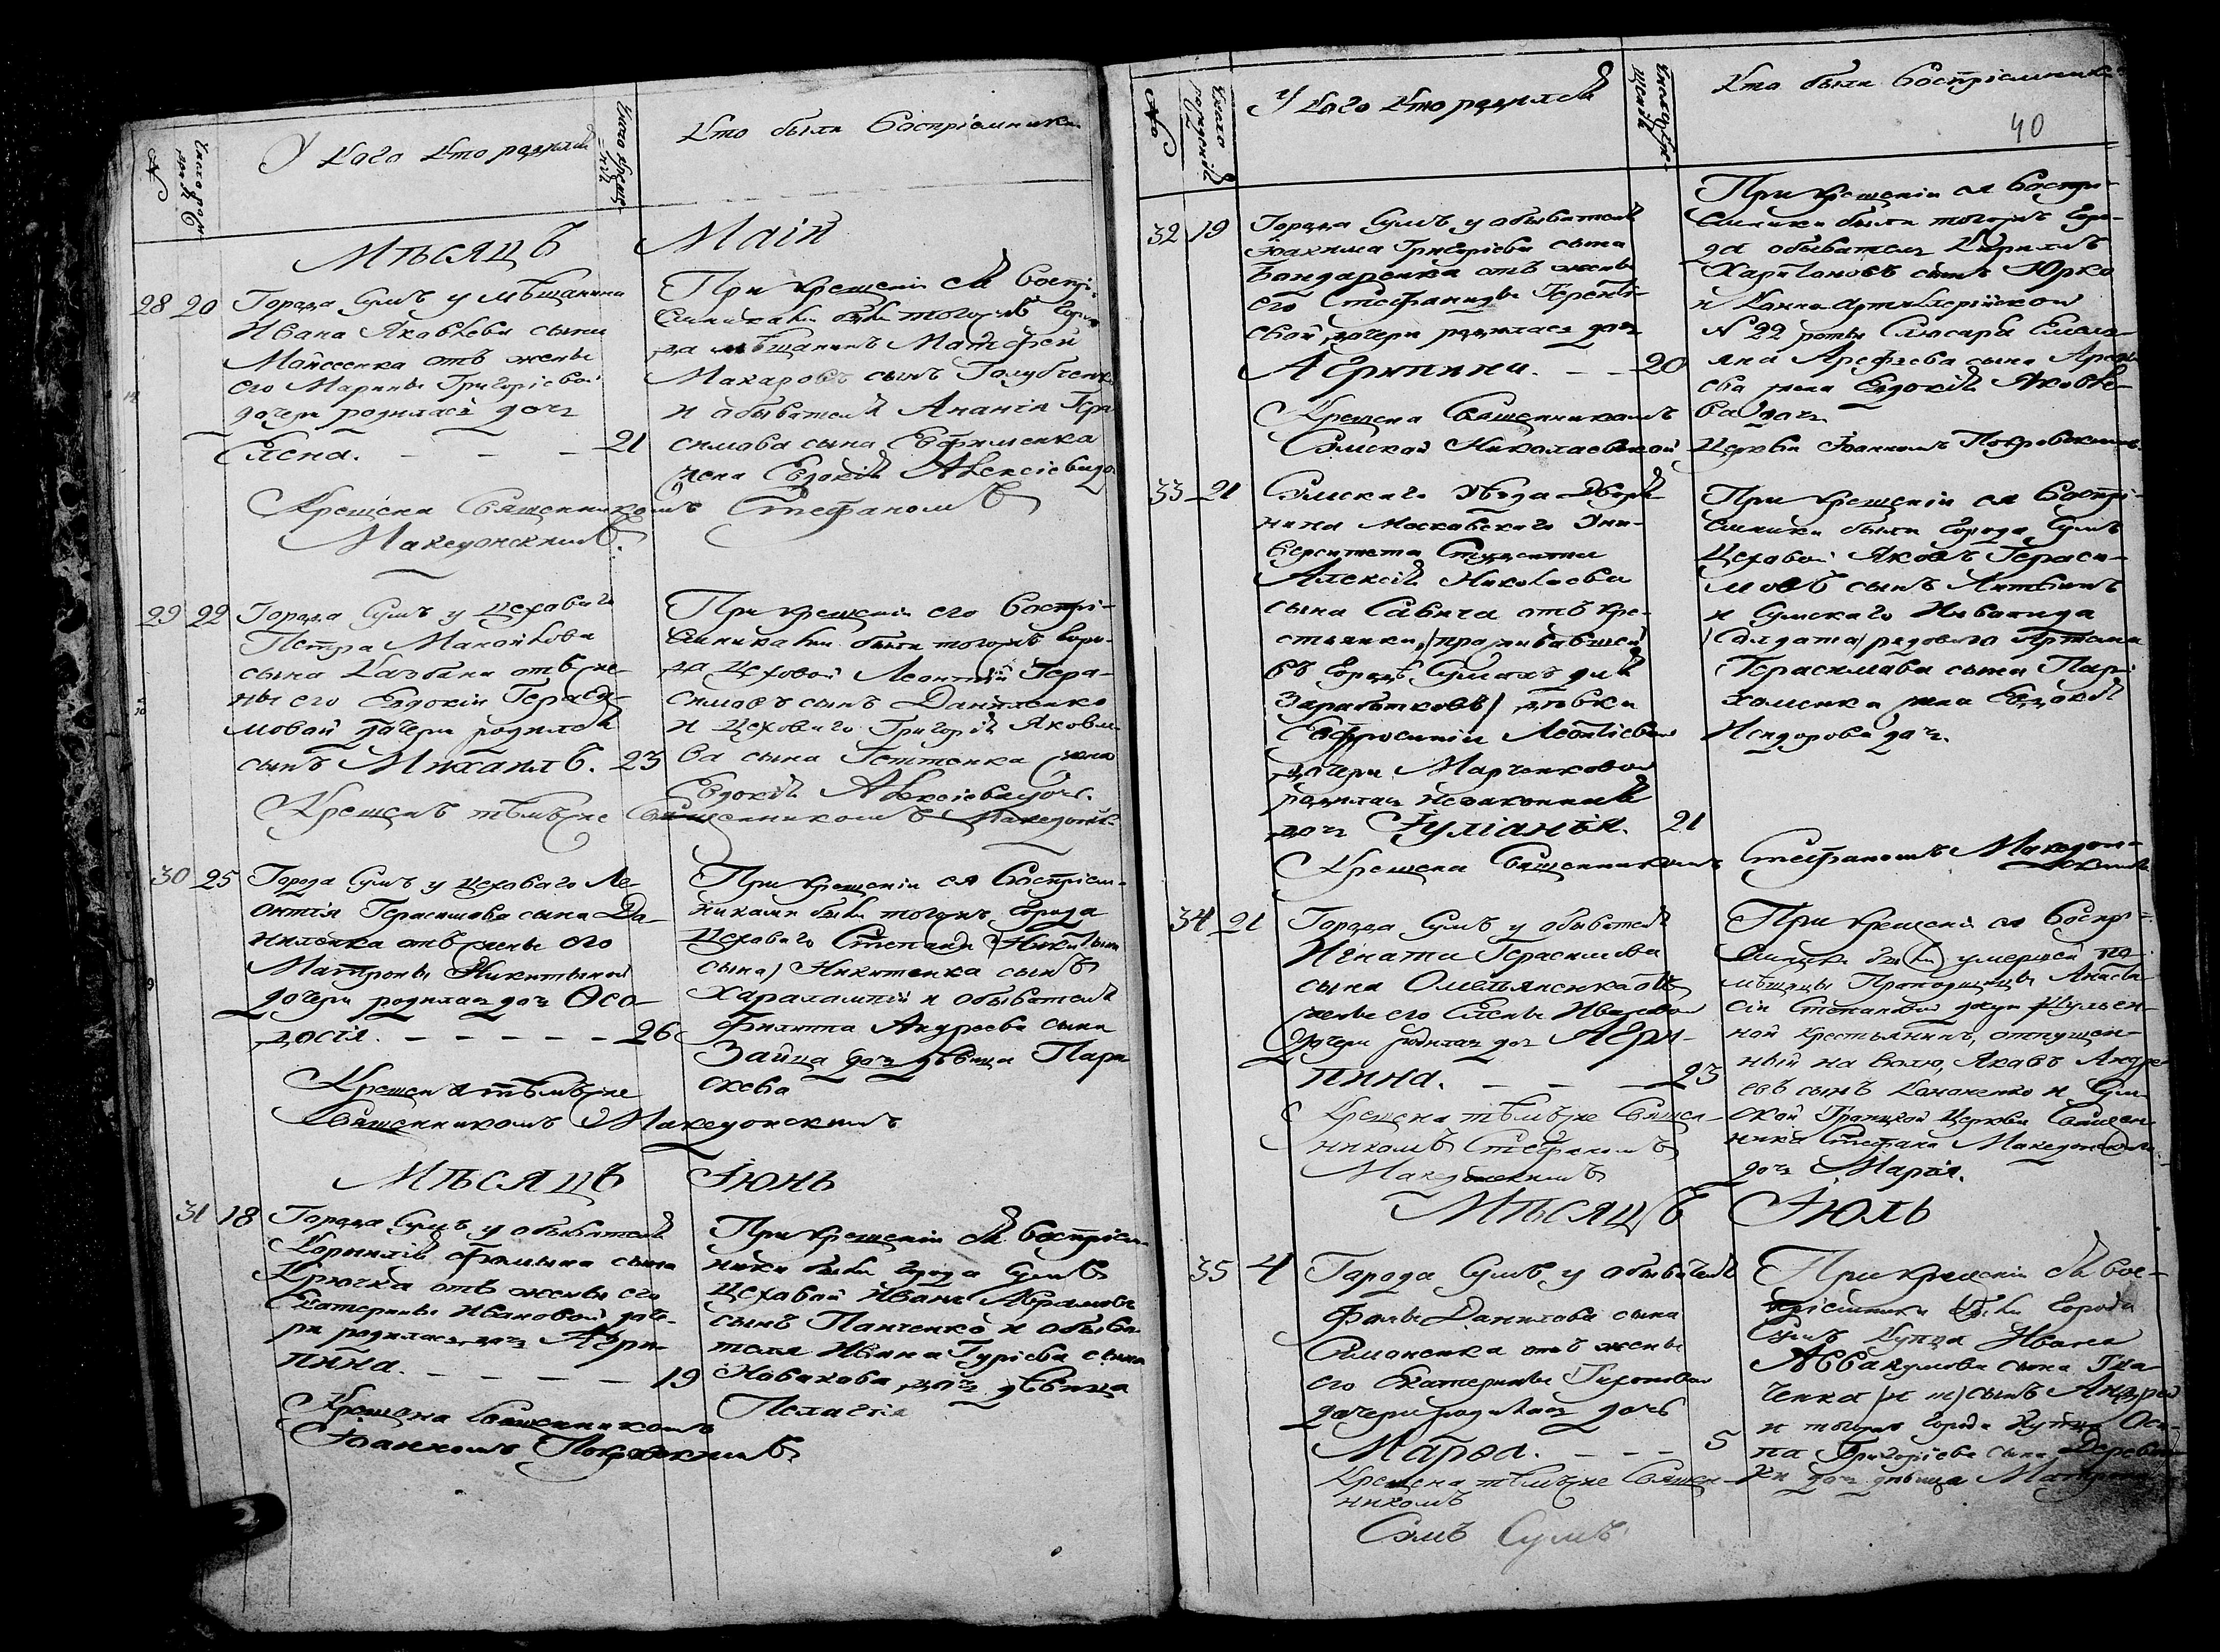 №
Число рожд.
У кого кто родился
Число креще-
нія
Кто были воспріемники
Мѣсяцъ Маій
28 20 Города Сумъ у мѣщанина
Ивана Яковлева сына
Мойсеенка отъ жены
его Марины Григоріевой
дочери родилась дочь
Елена. 21
Крещена Священникомъ Стефаномъ
Македонскимъ.
При крещеніи ея воспрі-
емниками были тогожъ горо-
да мѣщанинъ Матѳей
Макаровъ сынъ Голубченко
и обывателя Ананіи Гера-
симова сына Евфименка
жена Евдокія Алексіева до
29 22 Города Сумъ у цеховаго
Петра Манойлова
сына отъ же-
ны его Евдокіи Гераси-
мовой дочери родился
сынъ Михаилъ. 23
Крещенъ тѣмъ же Священникомъ Македонск.
При крещеніи его воспрі-
емниками были тогожъ горо-
да цеховой Леонтій Гера-
симовъ сынъ Даниленко
и цеховаго Григорія Яковле-
ва сына жена
Евдокія Алексіева доч.
30 25 Города Сумъ у цеховаго Ле-
онтія Герасимова сына Да-
ниленка отъ жены его
Матроны Никитиной
дочери родилась дочь Ѳео-
досія. 26
Крещена тѣмъ же
Священникомъ Македонскимъ
При крещеніи ея воспріем-
никами были тогожъ города
Цеховаго Степана Никитина
сына Никитенка сынъ
Харалампій и обывателя
Филиппа Андреева сына
Зайца дочь дѣвица Пара-
скева
Мѣсяцъ Іюнь
31 18 Города Сумъ у обывателя
Корнилія Ѳомина сына
Крючка отъ жены его
Екатерины Ивановой доче-
ри родилась дочь Агри-
пина. 19
Крещена Священникомъ
Іоанномъ Покровскимъ
При крещеніи ея воспріем-
ники были города Сумъ
цеховой Иванъ Абрамовъ
сынъ Панченко и обыва-
теля Ивана Гуріева сына
Новакова дочь дѣвица
Пелагія
№
Число
рожденія
У кого кто родился
Число кре-
щенія
Кто были воспріемники
40
32 19 Города Сумъ у обывателя
Іоакима Григоріева сына
Бондаренка отъ жены
его Стефаниды Теренті-
евой дочери родилась дочь
Агрипина. 20
Крещена Священникомъ
Сумской Николаевской Церкви Іоанномъ Покровскимъ
При крещеніи ея воспрі-
емники были тогожъ горо-
да обыватель Кирилъ
Харитоновъ сынъ Юрко
и Конно-артилерійской
№ 22 роты Слюсара Емель-
яна Арефьева сына
жена Евдокія Яковле-
ва дочь
33 21 Сумскаго уѣзда Дворя-
нина Московскаго Уни-
верситета Студента
Алексія Николаева
сына Савича отъ кре-
стьянки (проживавшей
въ городѣ Сумахъ для
заработковъ) дѣвки
Евфросиніи Леонтіевой
дочери Марченковой
родилась незаконная
дочь Іуліанія. 21
Крещена Священникомъ Стефаномъ Македон-
скимъ
При крещеніи ея воспрі-
емники были города Сумъ
Цеховой Яковъ Гераси-
мовъ сынъ
и Сумскаго Инвалида
(Солдата) рядоваго Артема
Герасимова сына Пар-
хоменка жена Евдокія
Исидорова доч.
34 21 Города Сумъ у обывателя
Игната Герасимова
сына Омельяненка отъ
жены его Елены Ивановой
дочери родилась доч Агри-
пина. 23
Крещена тѣмъ же Священ-
никомъ Стефаномъ
Македонскимъ
При крещеніи ея воспрі-
емники были умершей по-
мѣщицы Прапорщицы Анаста-
сіи Степановой дочери
крестьянинъ, отпущен-
ный на волю, Яковъ Андре-
евъ сынъ Кононенко и Сум-
ской Троицкой Церкви Священ-
ника Стефана Македонскаго
доч Марія.
Мѣсяцъ Іюль
35 4 Города Сумъ у обывателя
Ѳомы Данилова сына
Симоненка отъ жены
его Екатерины Тихоновой
дочери родилась дочь
Марѳа. 5
Крещена тѣмъ же Священ-
никомъ
При крещеніи ея вос-
пріемники были города
Сумъ Купца Ивана
Аввакумова сына Тка-
ченка сынъ Андрей
и тогожъ города купца Оси-
па Григоріева сына
дочь дѣвица Матрона
Сумъ